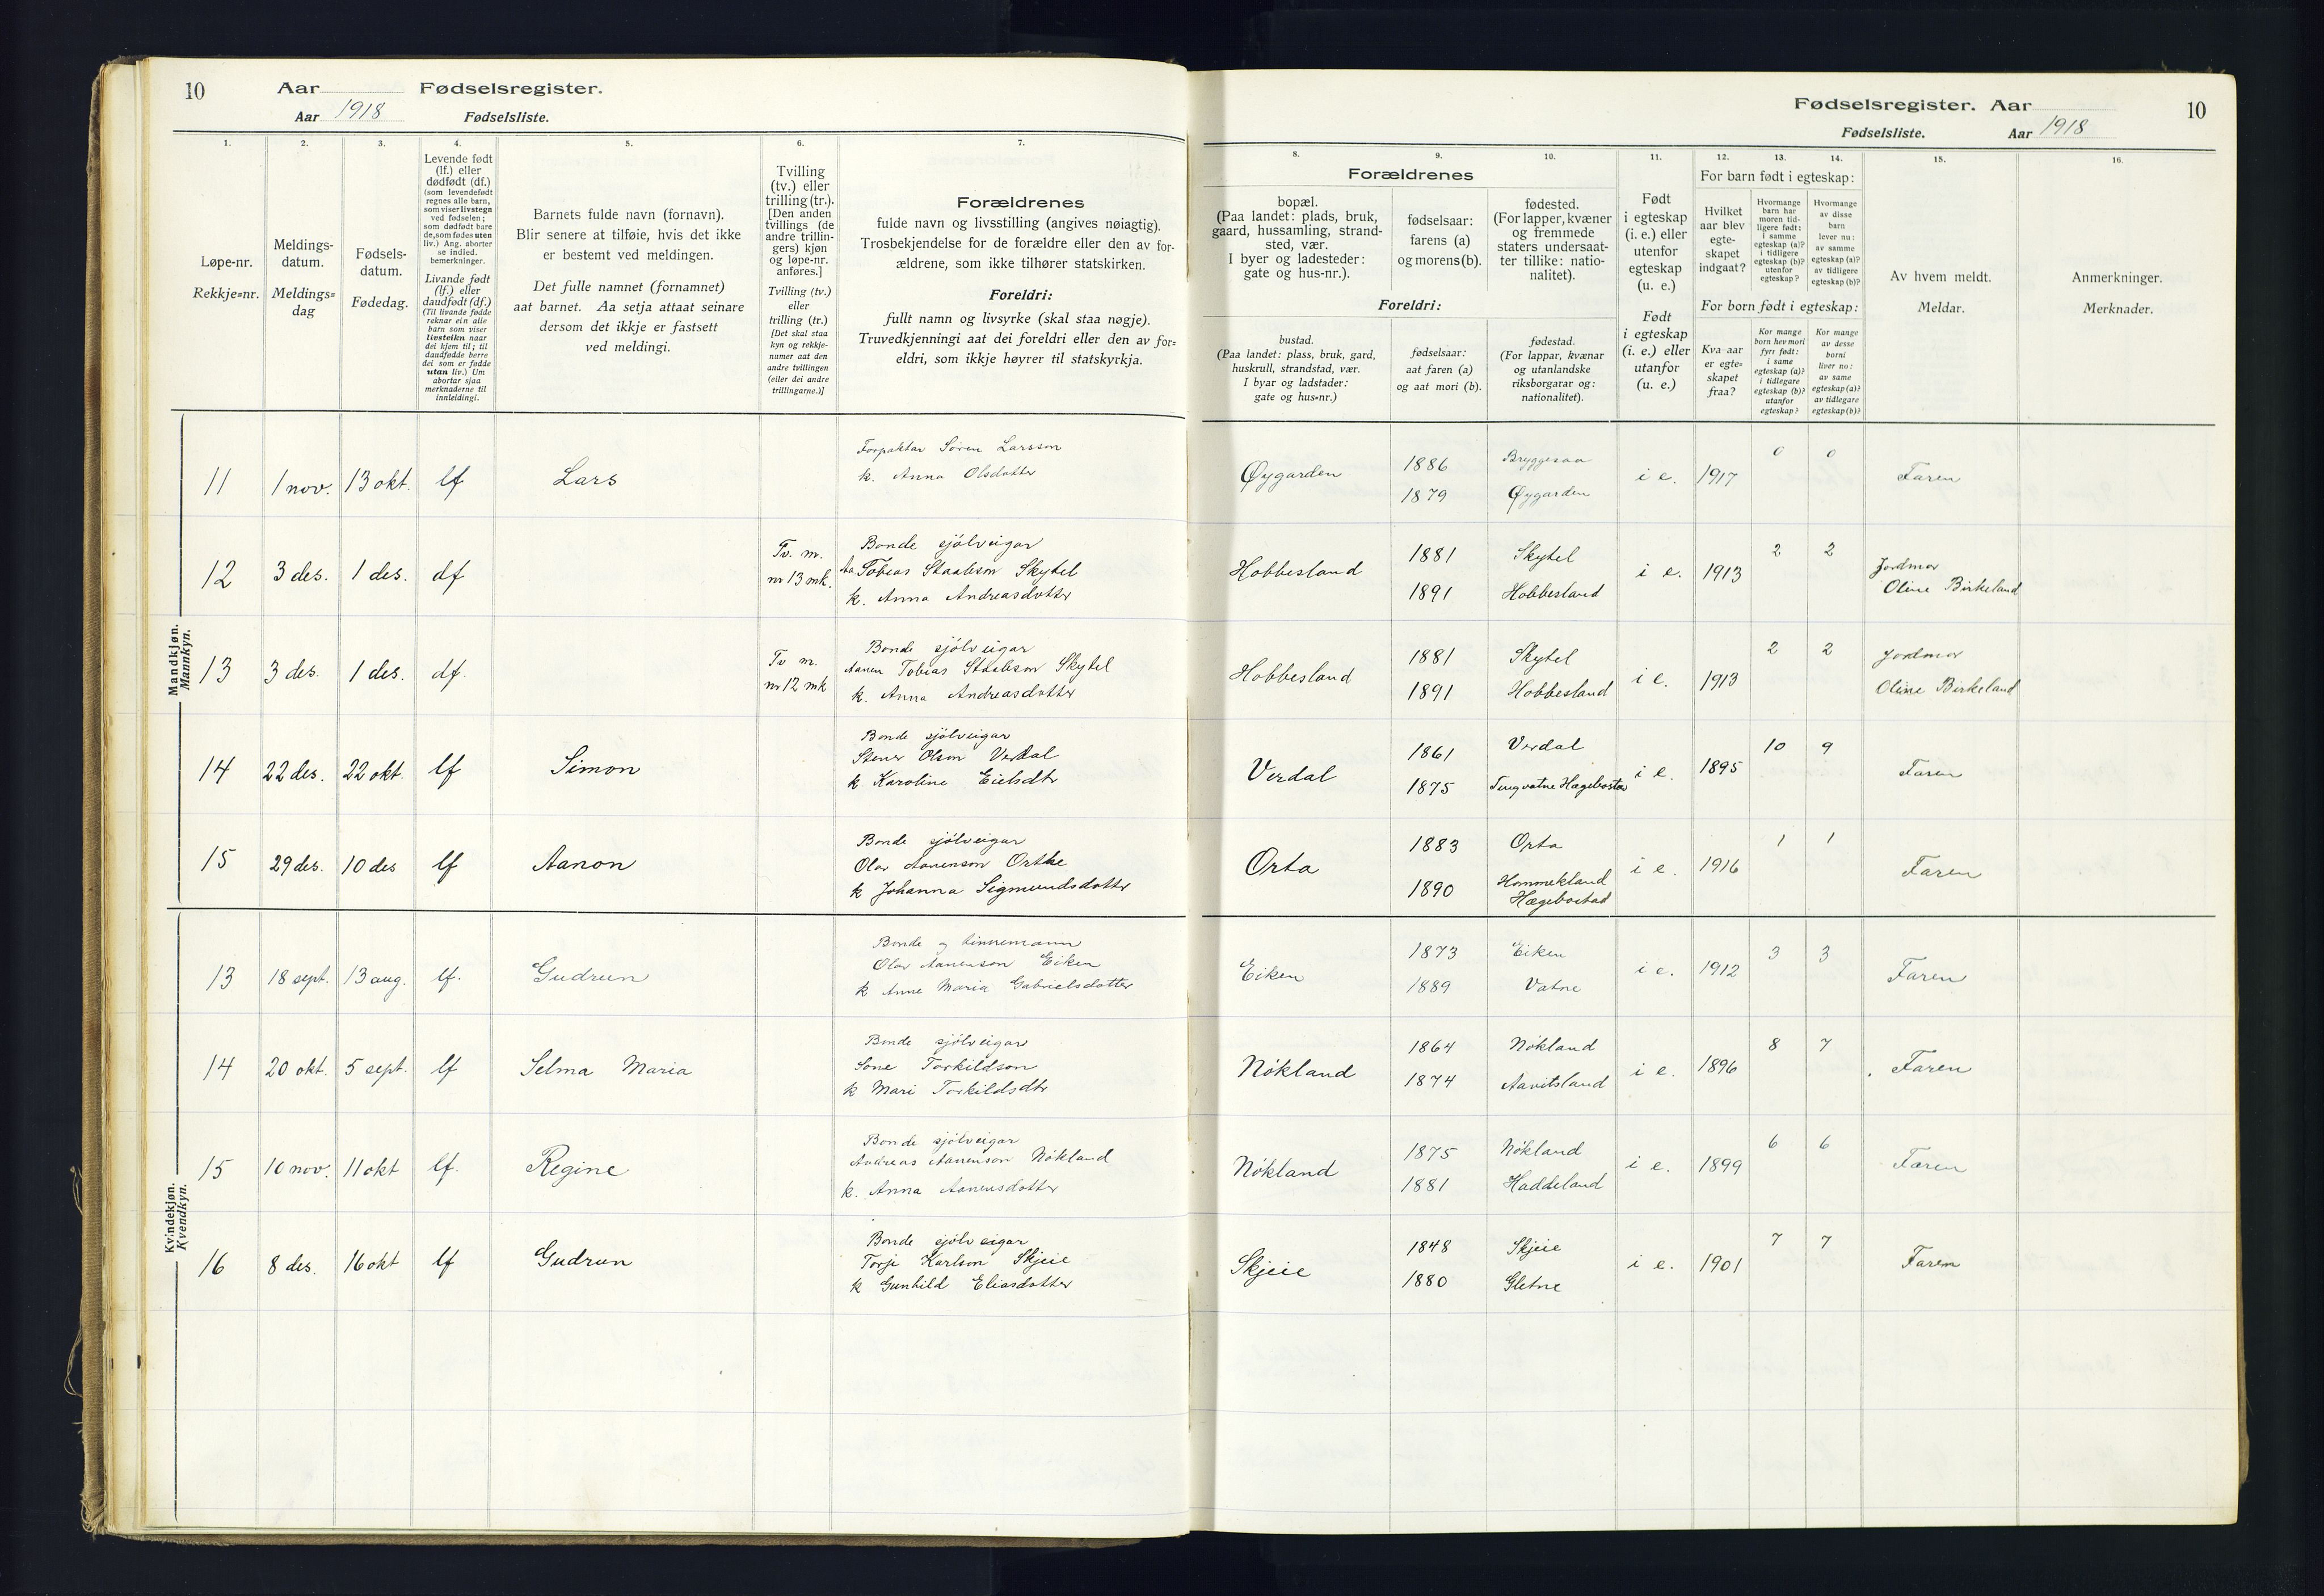 10
Aar
Fødselsregister.
Aar 1918
Fødselsliste.
Fødselsregister. Aar
10
Fødselsliste.
Aar 1918
1.
Løpe-nr.
Rekkje=nr.
2.
Meldings-
datum.
Meldings=
dag
3.
Fødsels-
datum.
Fødedag.
4.
Levende født
(lf.) eller
dødfødt (df.)
(som levendefødt
regnes alle barn,
som viser livstegn
ved fødselen;
som dødfødt bare
de, som fødes uten
liv.) Ang. aborter
se indled.
bemerkninger.
Livande født
(lf.) eller
daudfødt (df.)
(Til livande fødde
reknar ein alle
barn som viser
livsteikn naar
dei kjem til; til
daudfødde berre
dei som er fødde
utan liv.) Um
abortar sjaa
merknaderne til
innleidingi.
5.
Barnets fulde navn (fornavn).
Blir senere at tilføie, hvis det ikke
er bestemt ved meldingen.
Det fulle namnet (fornamnet)
aat barnet. Aa setja attaat seinare
dersom det ikkje er fastsett
ved meldingi.
6.
Tvilling
(tv.) eller
trilling (tr.).
[Den anden
tvillings (de
andre trillin-
gers) kjøn
og løpe-nr.
anføres.]
Tvilling (tv.)
eller
trilling (tr.)
[Det skal staa
kyn og rekkje-
numer aat den
andre tvillingen
(eller dei andre
trillingarne.)]
7.
Forældrenes
fulde navn og livsstilling (angives nøiagtig).
Trosbekjendelse for de forældre eller den av for-
ældrene, som ikke tilhører statskirken.
Foreldri:
fullt namn og livsyrke (skal staa nøgje).
Truvedkjenningi aat dei foreldri eller den av for=
eldri, som ikkje høyrer til statskyrkja.
8.
Forældrenes
bopæl.
(Paa landet: plads, bruk,
gaard, hussamling, strand-
sted, vær.
I byer og ladesteder:
gate og hus-nr.).
Foreldri:
bustad.
(Paa landet: plass, bruk, gard,
huskrull, strandstad, vær.
I byar og ladstader:
gate og hus=nr.)
9.
fødselsaar:
farens (a)
og morens(b).
fødselsaar:
aat faren (a)
og aat mori (b).
10.
fødested.
(For lapper, kvæner
og fremmede
staters undersaat-
ter tillike: natio-
nalitet).
fødestad.
(For lappar, kvænar
og utanlandske
riksborgarar og:
nationalitet).
11.
Født
i egteskap
(i. e.) eller
utenfor
egteskap
(u. e.)
Født
i egteskap
(i. e.) eller
utanfor
(u. e.)
12.
For barn født i egteskap:
Hvilket
aar blev
egte-
skapet
indgaat?
For born født i egteskap:
Kva aar
er egte=
skapet
fraa?
13.
Hvormange
barn har
moren tid-
ligere født:
i samme
egteskap (a)?
i tidligere
egteskap (b)?
utenfor
egteskap?
Kor mange
born hev mori
fyrr født:
i same
egteskap (a)?
i tidlegare
egteskap (b)?
utanfor
egteskap?
14.
Hvormange
av disse
barn
lever nu:
av samme
egteskap (a)?
av tidligere
egteskap (b)?
Kor mange
av desse
borni
liver no:
av same
egteskap (a)?
av tidlegare
egteskap (b)?
15.
Av hvem meldt.
Meldar.
16.
Anmerkninger.
Merknader.
Mandkjøn.
Mannkyn.
11 1 nov. 13 okt. lf Lars
Forpaktar Søren Larsson
k. Anna Olsdotter
Øygarden 1886 Bryggesaa i e. 1917 0 0 Faren
1879 Øygarden
12 3 des. 1 des. df Tv. m. nr 13 mk.
Bonde sjølveigar
Aa. Tobias Staalesen Skytel
k. Anna Andreasdotter
Hobbesland 1881 Skytel i e. 1913 2 2 Jordmor
1891 Hobbesland Oline Birkeland
13 3 des. 1 des. df. Tv m. nr 12 mk
Bonde sjølveigar
Aanen Tobias Staalesen Skytel
k. Anna Andreasdotter
Hobbesland 1881 Skytel i e. 1913 2 2 Jordmor
1891 Hobbesland Oline Birkeland
14 22 des. 22 okt. lf Simon
Bonde sjølveigar
Olson Verdal
k Karoline
Verdal 1861 Verdal i e. 1895 10 9 Faren
1875 Hægebostad
15 29 des. 10 des lf Aanon
Bonde sjølveigar
Olav Aanenson
k Johanna Sigmundsdotter
Orta 1883 Orta i e. 1916 1 1 Faren
1890 Hommekland
Hægebostad
Kvindekjøn.
Kvendkyn.
13 18 sept. 13 aug. lf. Gudrun
Bonde og
Olav Aanenson Eiken
k Anne Maria Gabrielsdotter
Eiken 1873 Eiken i e. 1912 3 3 Faren
1889 Vatne
14 20 okt. 5 sept. lf Selma Maria
Bonde sjølveigar
Sone Torkildson
k Mari Torkildsdtr
Nökland 1864 Nökland i e. 1896 8 7 Faren
1874 Aavitsland
15 10 nov. 11 okt lf. Regine
Bonde sjølveigar
Andreas Aanenson Nökland
k. Anna Aanensdotter
Nökland 1875 Nökland i e. 1899 6 6 Faren
1881 Haddeland
16 8 des. 16 okt lf Gudrun
Bonde sjølveigar
Torje Karlson Skjeie
k Gunhild Eliasdotter
Skjeie 1848 Skjeie i e. 1901 7 7 Faren
1880 Gletne